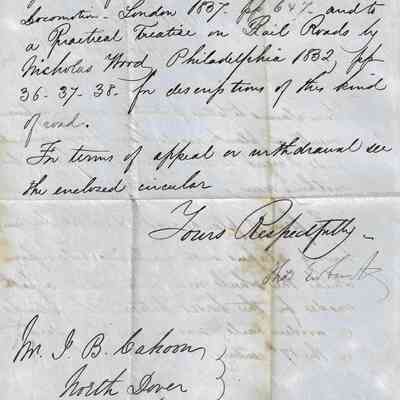 Locomotion - London 1837. pp 647. and to
a Practical Treatise on Rail Roads by
Nicholas Wood Philadelphia 1832, pp
36-37-38- for descriptions of this kind
of road.
For terms of appeal or withdrawal see
the enclosed circular
Yours Respectfully -
Thos
Mr. J. B. Cahoon
North Dover